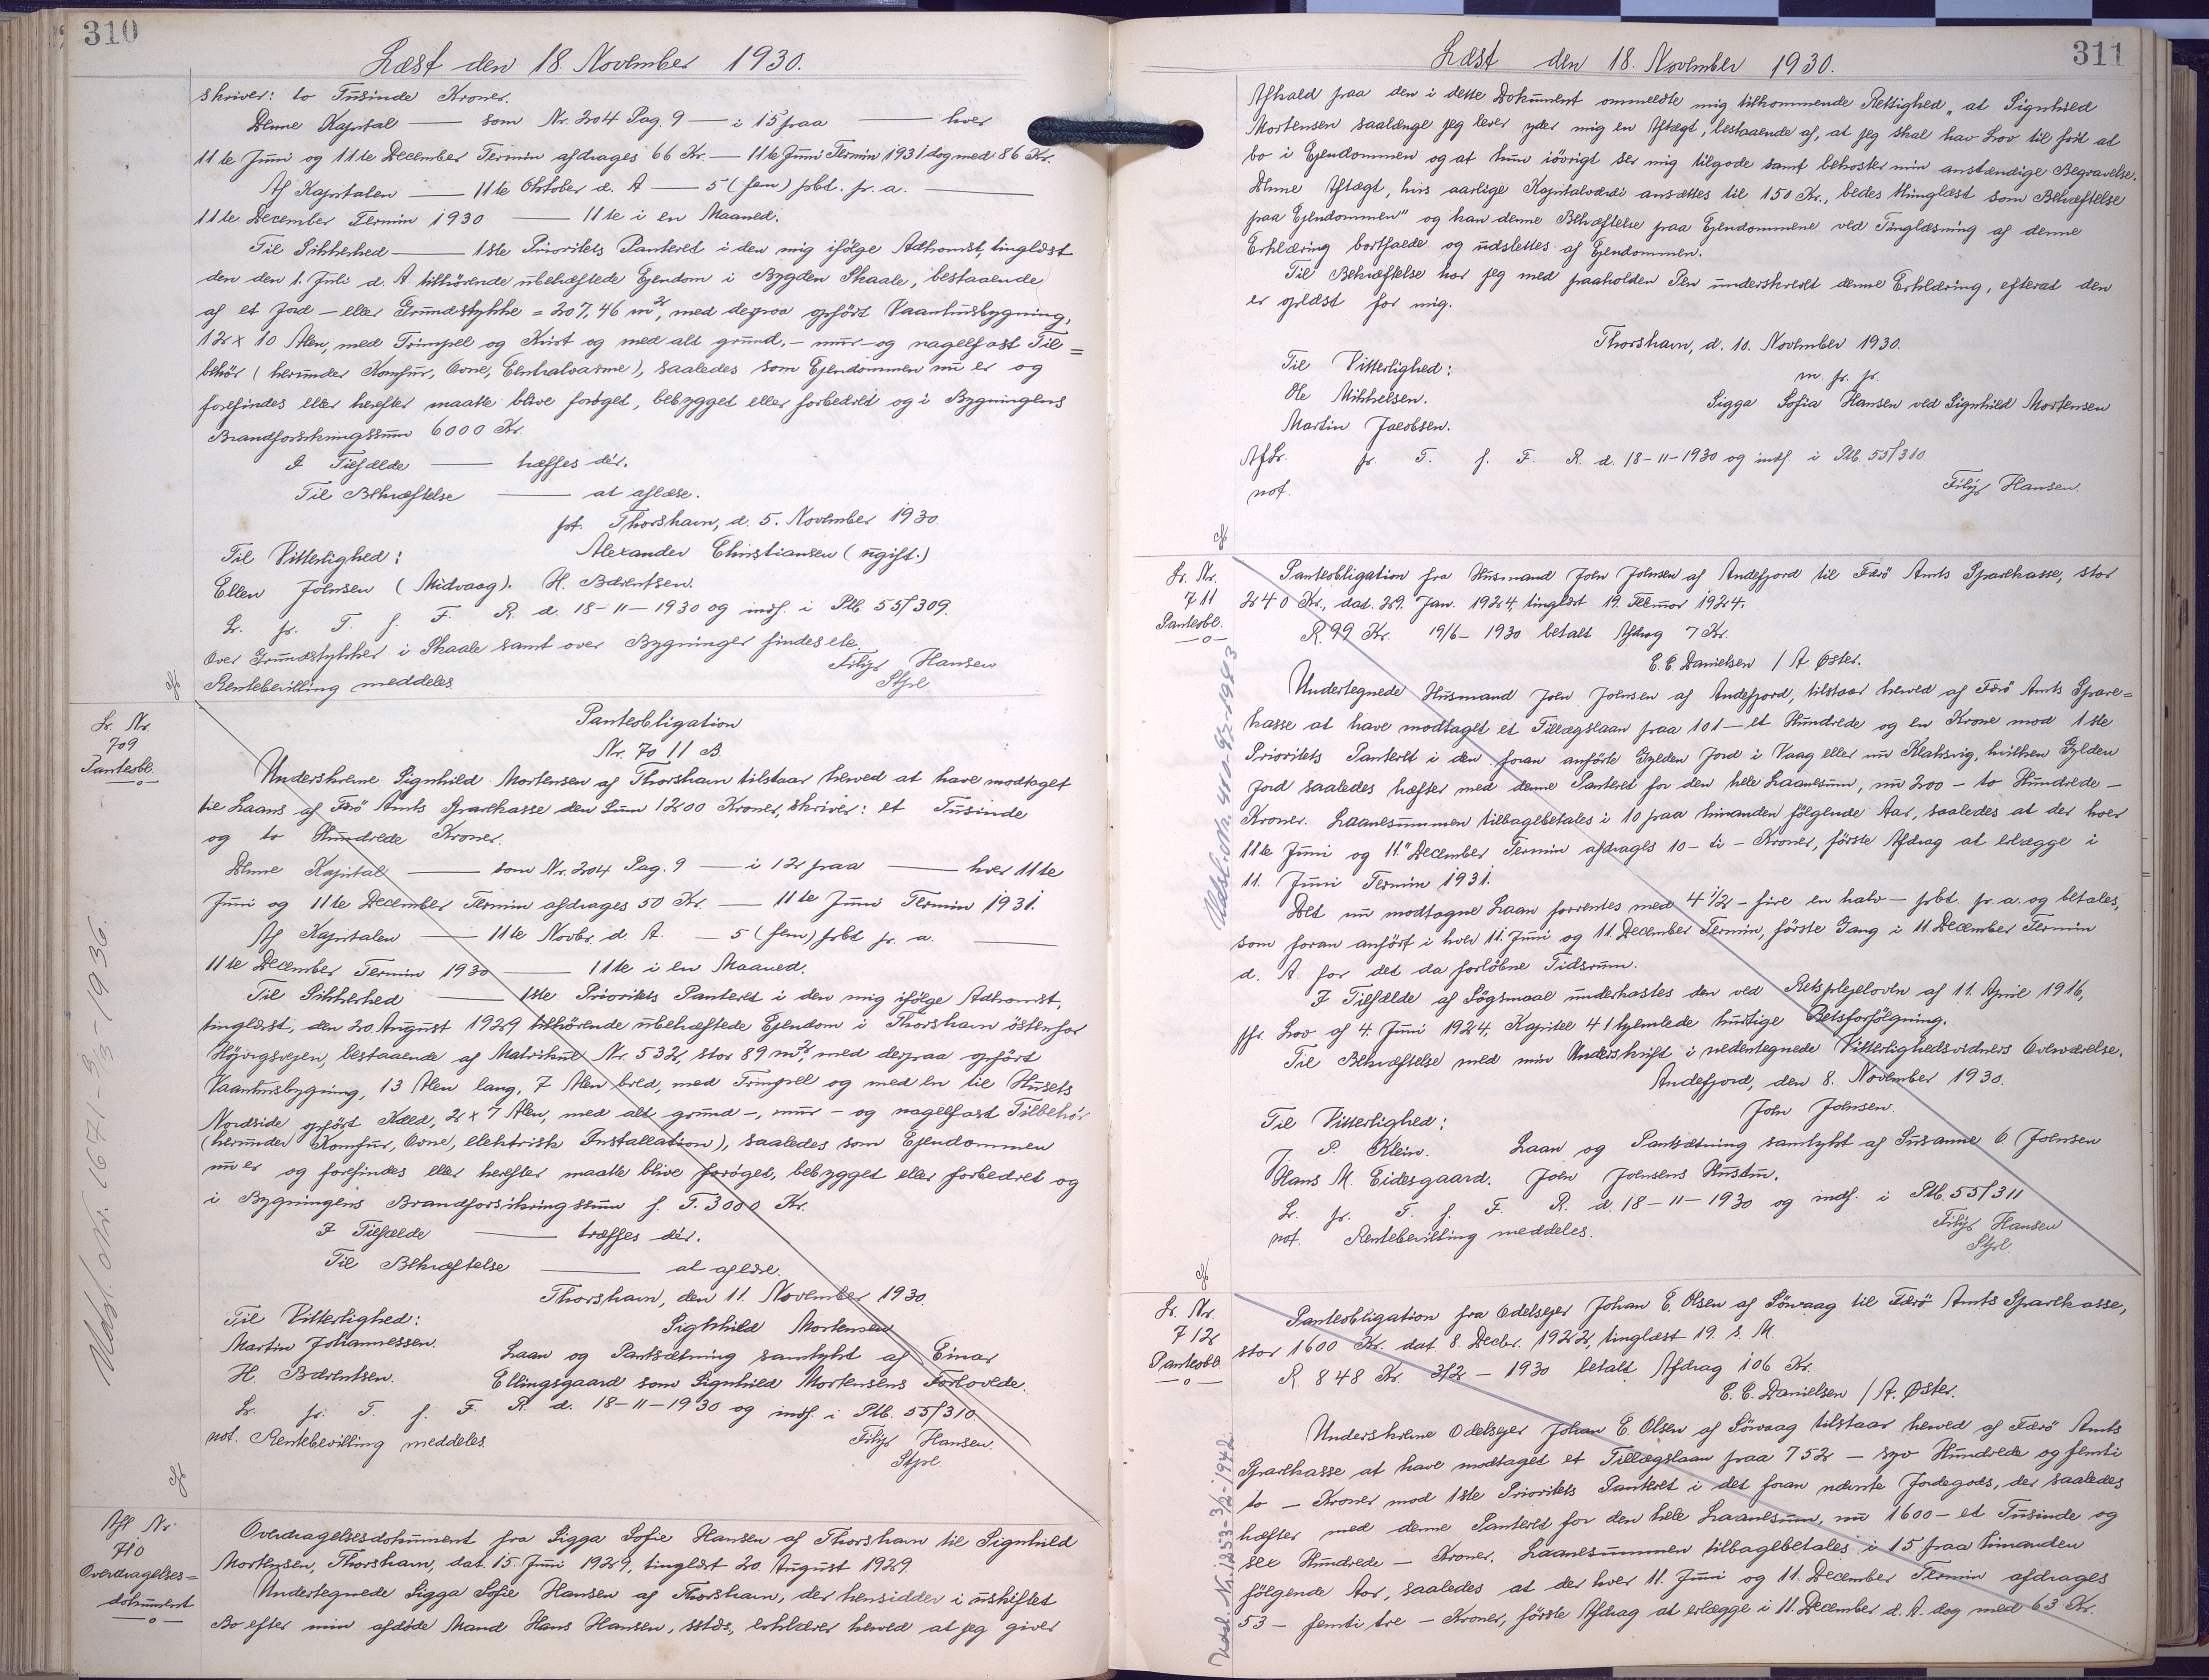 310
Læst den 18. November 1930.
skriver: to Tusinde Kroner.
Denne Kapital — som Nr. 204 Pag. 9 — i 15 paa — hver
11te Juni og 11te December Termin afdrages 66 Kr. — 11te Juni Termin 1931 dog med 86 Kr.
Af Kapitalen — 11te Oktober d. A — 5 (fem) pCt. pr. a. —
11te December Termin 1930 — 11te i en Maaned.
Til Sikkerhed — 1ste Prioritets Panteret i den mig ifølge Adkomst, tinglæst
den den 1. Juli d. A. tilhörende ubehæftede Ejendom i Bygden Skaale, bestaaende
af et Jord- eller Grundstykke = 207,46 m², med derpaa opfört Vaaningsbygning,
12 x 10 Alen, med Trimpel og Kvist og med alt grund,- mur- og nagelfast Til=
behör (herunder Komfur, Ovne, Centralvarme), saaledes som Ejendommen nu er og
forefindes eller herefter maatte blive foröget, bebygget eller forbedret og i Bygningens
Brandforsikringssum 6000 Kr.
I Tilfælde — træffes dér.
Til Bekræftelse — at aflæse.
pt. Thorshavn, d. 5. November 1930.
Til Vitterlighed: Alexander Christiansen (ugift.)
Ellen Johnsen (Midvaag). H. Bærentsen.
Lr. pr. T. f. F. R. d. 18-11-1930 og indf. i Ptb 55/309.
Over Grundstykker i Skaale samt over Bygninger findes etc.
Rentebevilling meddeles. Filip Hansen
Stpl
Lr. Nr.
709
Panteobl.
—o—
Panteobligation
Nr. 70 11 B
Underskrevne Signhild Mortensen af Thorshavn tilstaar herved at have modtaget
til Laans af Færö Amts Sparekasse den Sum 1200 Kroner, skriver: et Tusinde
og to Hundrede Kroner.
Denne Kapital — som Nr. 204 Pag. 9 — i 12 paa — hver 11te
Juni og 11te December Termin afdrages 50 Kr. — 11te Juni Termin 1931.
Af Kapitalen — 11te Novbr. d. A. — 5 (fem) pCt pr. a. —
11te December Termin 1930 — 11te i en Maaned.
Til Sikkerhed — 1ste Prioritets Panteret i den mig ifølge Adkomst,
tinglæst, den 20 August 1929 tilhörende ubehæftede Ejendom i Thorshavn östenfor
Höjvigsvejen, bestaaende af Matrikul Nr. 532, stor 89 m², med derpaa opfört
Vaaningsbygning, 13 Alen lang, 7 Alen bred, med Trimpel og med en til Husets
Nordside opfört Kæld, 2 x 7 Alen, med alt grund-, mur- og nagelfast Tilbehör
(herunder Komfur, Ovne, elektrisk Installation), saaledes som Ejendommen
nu er og forefindes eller herefter maatte blive foröget, bebygget eller forbedret og
i Bygningens Brandforsikringssum f. T. 3000 Kr.
I Tilfælde — træffes dér.
Til Bekræftelse — at aflæse.
Thorshavn, den 11. November 1930.
Til Vitterlighed: Signhild Mortensen
Martin Johannessen. Laan og Pantsætning samtykt af Einar
H. Bærentsen. Ellingsgaard som Signhild Mortensens Forlovede.
Lr. pr. T. f. F. R. d. 18-11-1930 og indf. i Ptb. 55/310
not. Rentebevilling meddeles. Filip Hansen.
Stpl.
Udsl. Nr. 1671-3/3-1936.
Afl Nr.
710
Overdragelses=
dokument
—o—
Overdragelsesdokument fra Sigga Sofie Hansen af Thorshavn til Signhild
Mortensen, Thorshavn, dat. 15. Juni 1929, tinglæst 20. August 1929.
Undertegnede Sigga Sofie Hansen af Thorshavn, der hensidder i uskiftet
Bo efter min afdöde Mand Hans Hansen, sstds., erklærer herved at jeg giver
311
Læst den 18. November 1930.
Afkald paa den i dette Dokument ommeldte mig tilkommende Rettighed „at Signhild
Mortensen saalænge jeg lever yder mig en Aftægt, bestaaende af, at jeg skal hav Lov til frit at
bo i Ejendommen og at hun iövrigt ser mig tilgode samt bekoster min anstændige Begravelse.
Denne Aftægt, hvis aarlige Kapitalværdi ansættes til 150 Kr., bedes tinglæst som Behæftelse
paa Ejendommen" og kan denne Behæftelse paa Ejendommene ved Tinglæsning af denne
Erklæring bortfalde og udslettes af Ejendommen.
Til Bekræftelse har jeg med paaholden Pen underskrevet denne Erklæring, efterat den
er oplæst for mig.
Thorshavn, d. 10. November 1930.
Til Vitterlighed: m. f. p.
Ole Mikkelsen. Sigga Sofia Hansen ved Signhild Mortensen
Martin Jacobsen.
Aflr. pr. T. f. F. R. d. 18-11-1930 og indf. i Ptb. 55/310
not. Filip Hansen.
Lr. Nr.
711
Panteobl.
—o—
Panteobligation fra Husmand John Johnsen af Andefjord til Færö Amts Sparekasse, stor
240 Kr., dat. 29. Jan. 1924, tinglæst 19. Februar 1924.
R. 99 Kr. 19/6-1930 betalt Afdrag 7 Kr.
E. E. Danielsen / A. Øster.
Undertegnede Husmand John Johnsen af Andefjord, tilstaar herved af Færö Amts Spare=
kasse at have modtaget et Tillægslaan paa 101 — et Hundrede og en Krone mod 1ste
Prioritets Panteret i den foran anförte Gylden Jord i Vaag eller nu Klaksvig, hvilken Gylden
Jord saaledes hæfter med denne Panteret for den hele Laanesum, nu 200 — to Hundrede —
Kroner. Laanesummen tilbagebetales i 10 paa hinanden fölgende Aar, saaledes at der hver
11te Juni og 11" December Termin afdrages 10 — ti — Kroner, förste Afdrag at erlægge i
11. Juni Termin 1931.
Det nu modtagne Laan forrentes med 4 1/2 — fire en halv — pCt. pr. a. og betales,
som foran anfört i hver 11. Juni og 11. December Termin, förste Gang i 11. December Termin
d. A. for det da forlöbne Tidsrum.
I Tilfælde af Sögsmaal underkastes den ved Retsplejeloven af 11. April 1916,
jfr. Lov af 4. Juni 1924, Kapitel 41 hjemlede hurtige Retsforfölgning.
Til Bekræftelse med min Underskrift i nedentegnede Vitterlighedsvidners Overværelse.
Andefjord, den 8. November 1930.
Til Vitterlighed: John Johnsen.
J. P. Klein. Laan og Pantsætning samtykt af Susanne O. Johnsen
Hans M. Eidesgaard. John Johnsens Hustru.
Lr. pr. T. f. F. R. d. 18-11-1930 og indf. i Ptb. 55/311
not. Rentebevilling meddeles. Filip Hansen
Stpl.
Lr. Nr.
712
Panteobl.
—o—
Panteobligation fra Odelsejer Johan E. Olsen af Sörvaag til Færö Amts Sparekasse,
stor 1600 Kr. dat. 8. Decbr. 1922, tinglæst 19. s. M.
R. 848 Kr. 3/2-1930 betalt Afdrag 106 Kr.
E. E. Danielsen / A. Øster.
Underskrevne Odelsejer Johan E. Olsen af Sörvaag tilstaar herved af Færö Amts
Sparekasse at have modtaget et Tillægslaan paa 752 — syv Hundrede og femti
to — Kroner mod 1ste Prioritets Panteret i det foran nævnte Jordegods, der saaledes
hæfter med denne Panteret for den hele Laanesum, nu 1600 — et Tusinde og
sex Hundrede — Kroner. Laanesummen tilbagebetales i 15 paa hinanden
fölgende Aar, saaledes at der hver 11. Juni og 11. December Termin afdrages
53 — femti tre — Kroner, förste Afdrag at erlægge i 11. December d. A. dog med 63 Kr.
Udsl. Nr. 1253-3/2-1942.